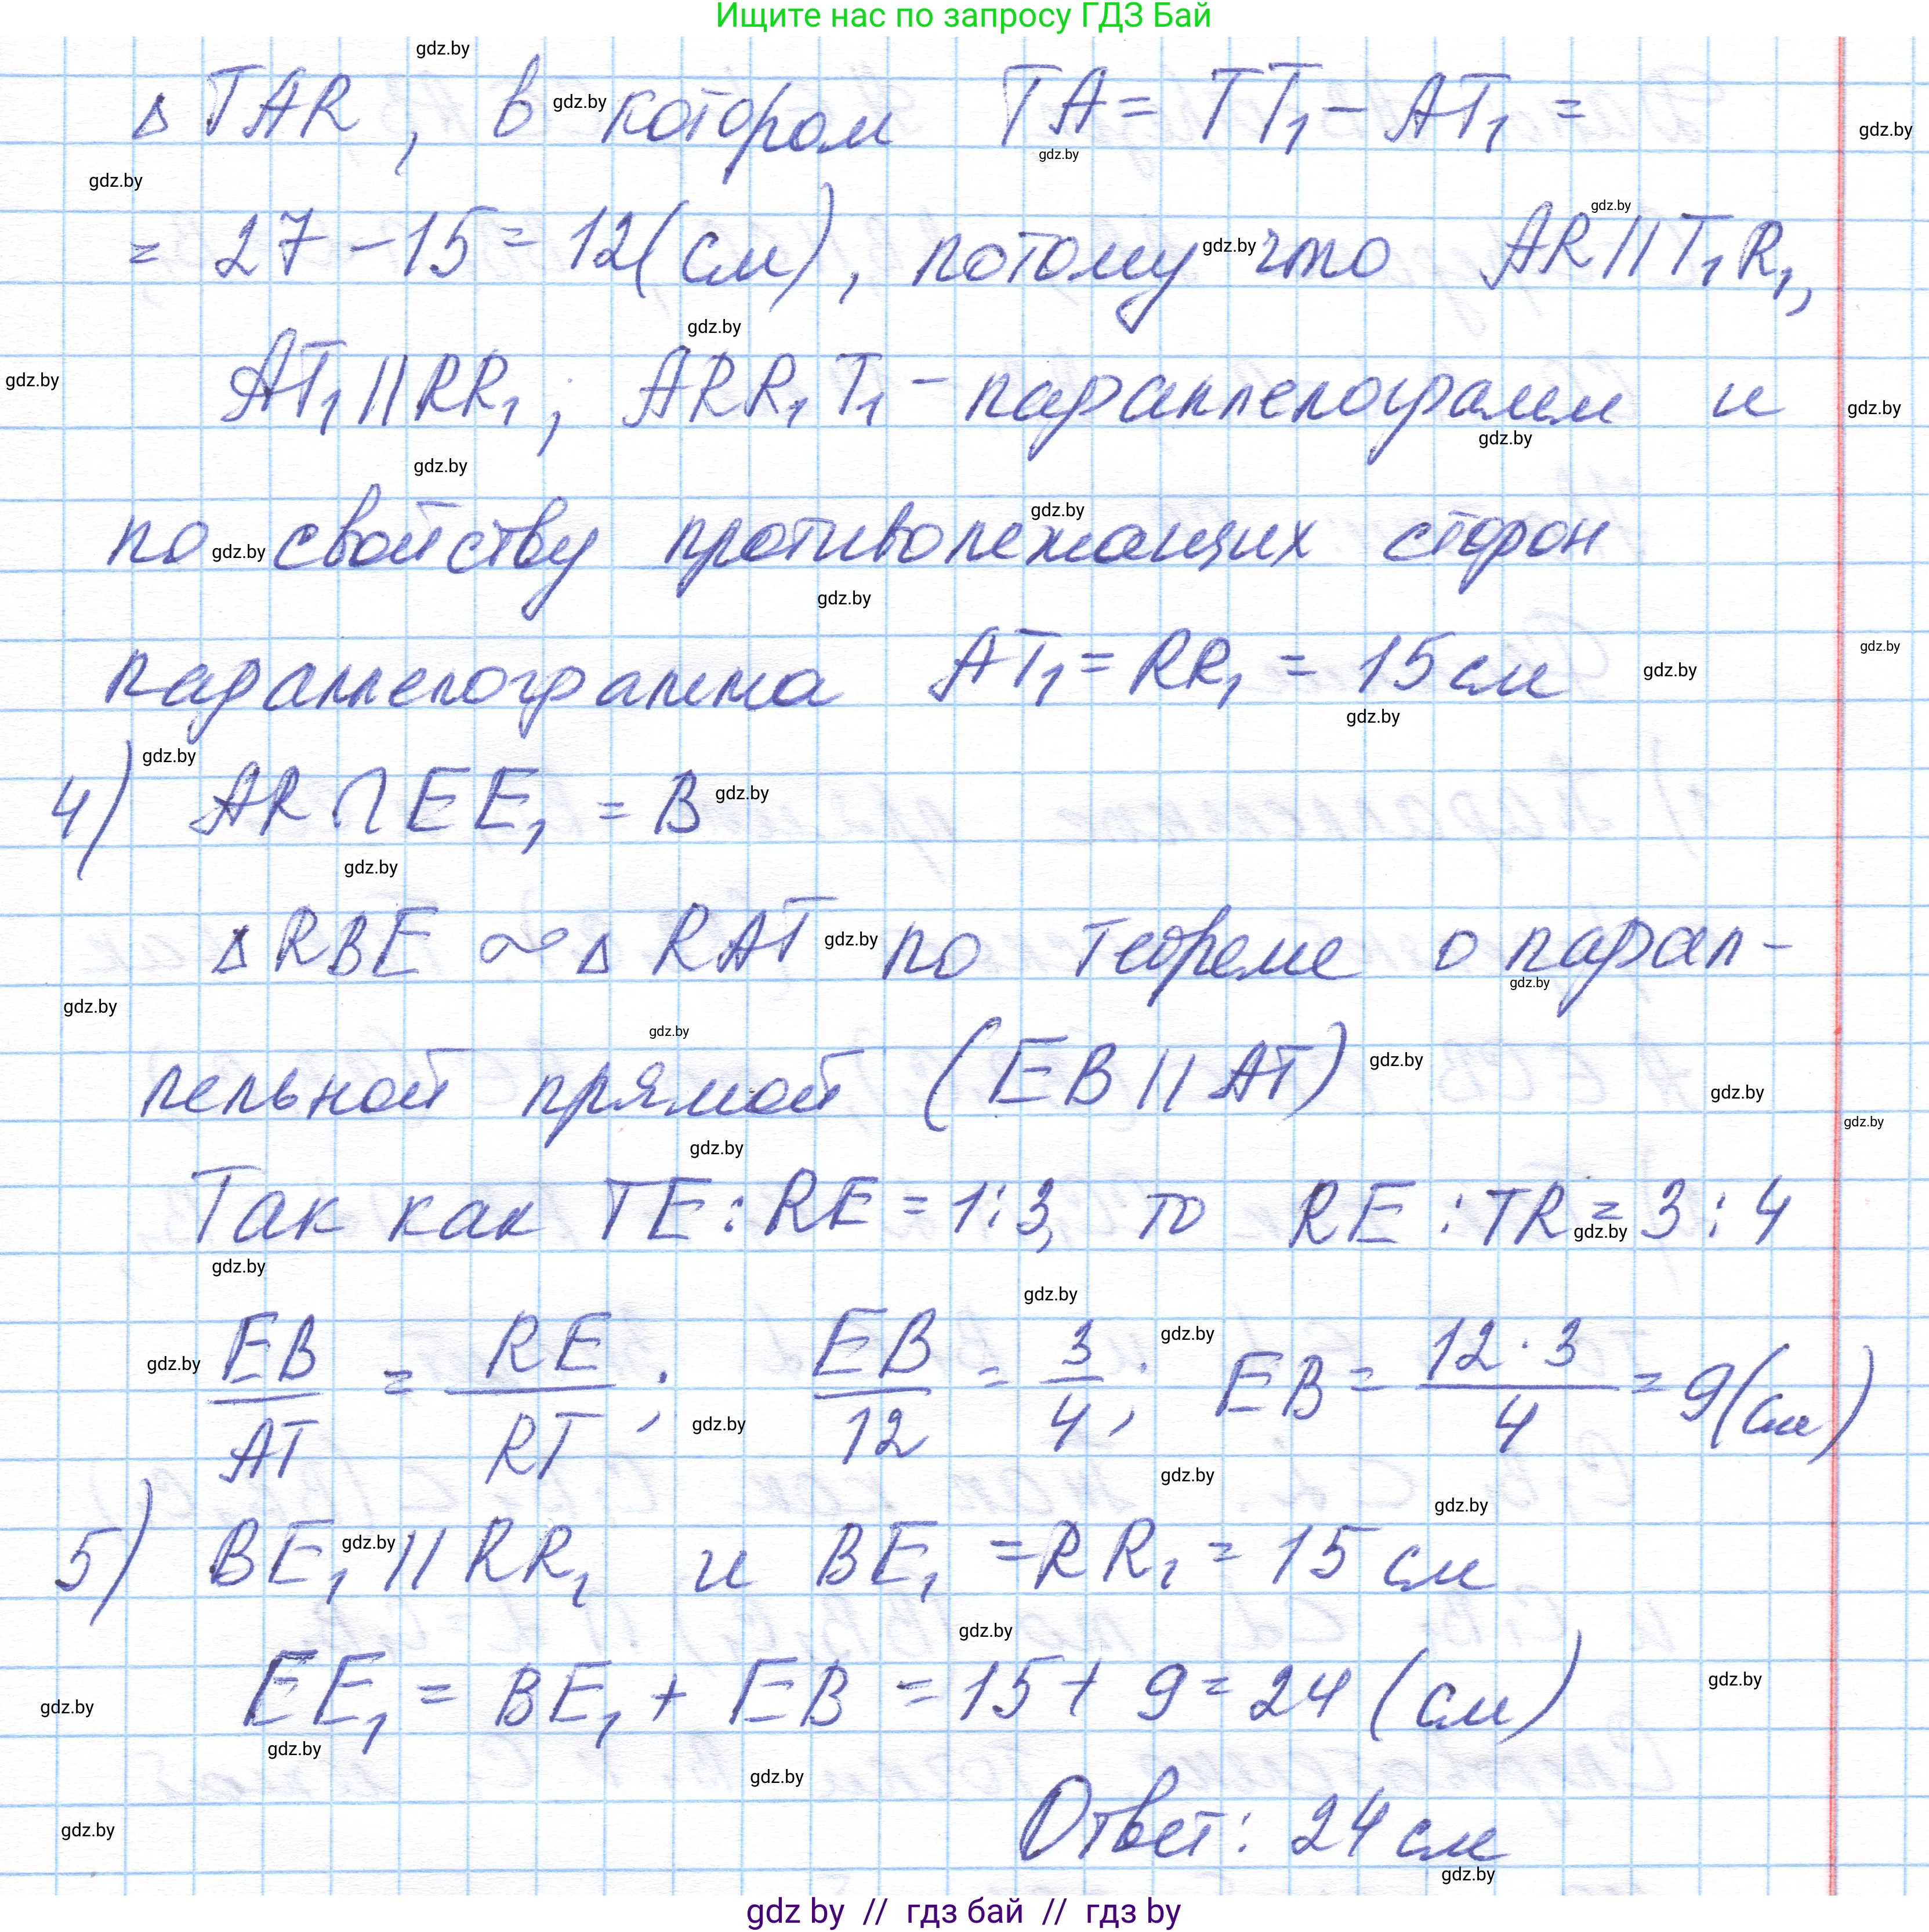 Ищите нас по запросу ГДЗ Бай
Δ TAR, в котором TA = TT₁ - AT₁ =
= 27 - 15 = 12 (см), потому что AR || T₁R₁,
AT₁ || RR₁; ARR₁T₁ - параллелограмм и
по свойству противолежащих сторон
параллелограмма AT₁ = RR₁ = 15 см
4) AR ∩ EE₁ = B
Δ RBE ∾ Δ RAT по теореме о парал-
лельной прямой (EB || AT)
Так как TE : RE = 1 : 3, то RE : TR = 3 : 4
EB/AT = RE/RT; EB/12 = 3/4; EB = 12 · 3/4 = 9 (см)
5) BE₁ || RR₁ и BE₁ = RR₁ = 15 см
EE₁ = BE₁ + EB = 15 + 9 = 24 (см)
Ответ: 24 см
gdz by // гдз бай // гдз by